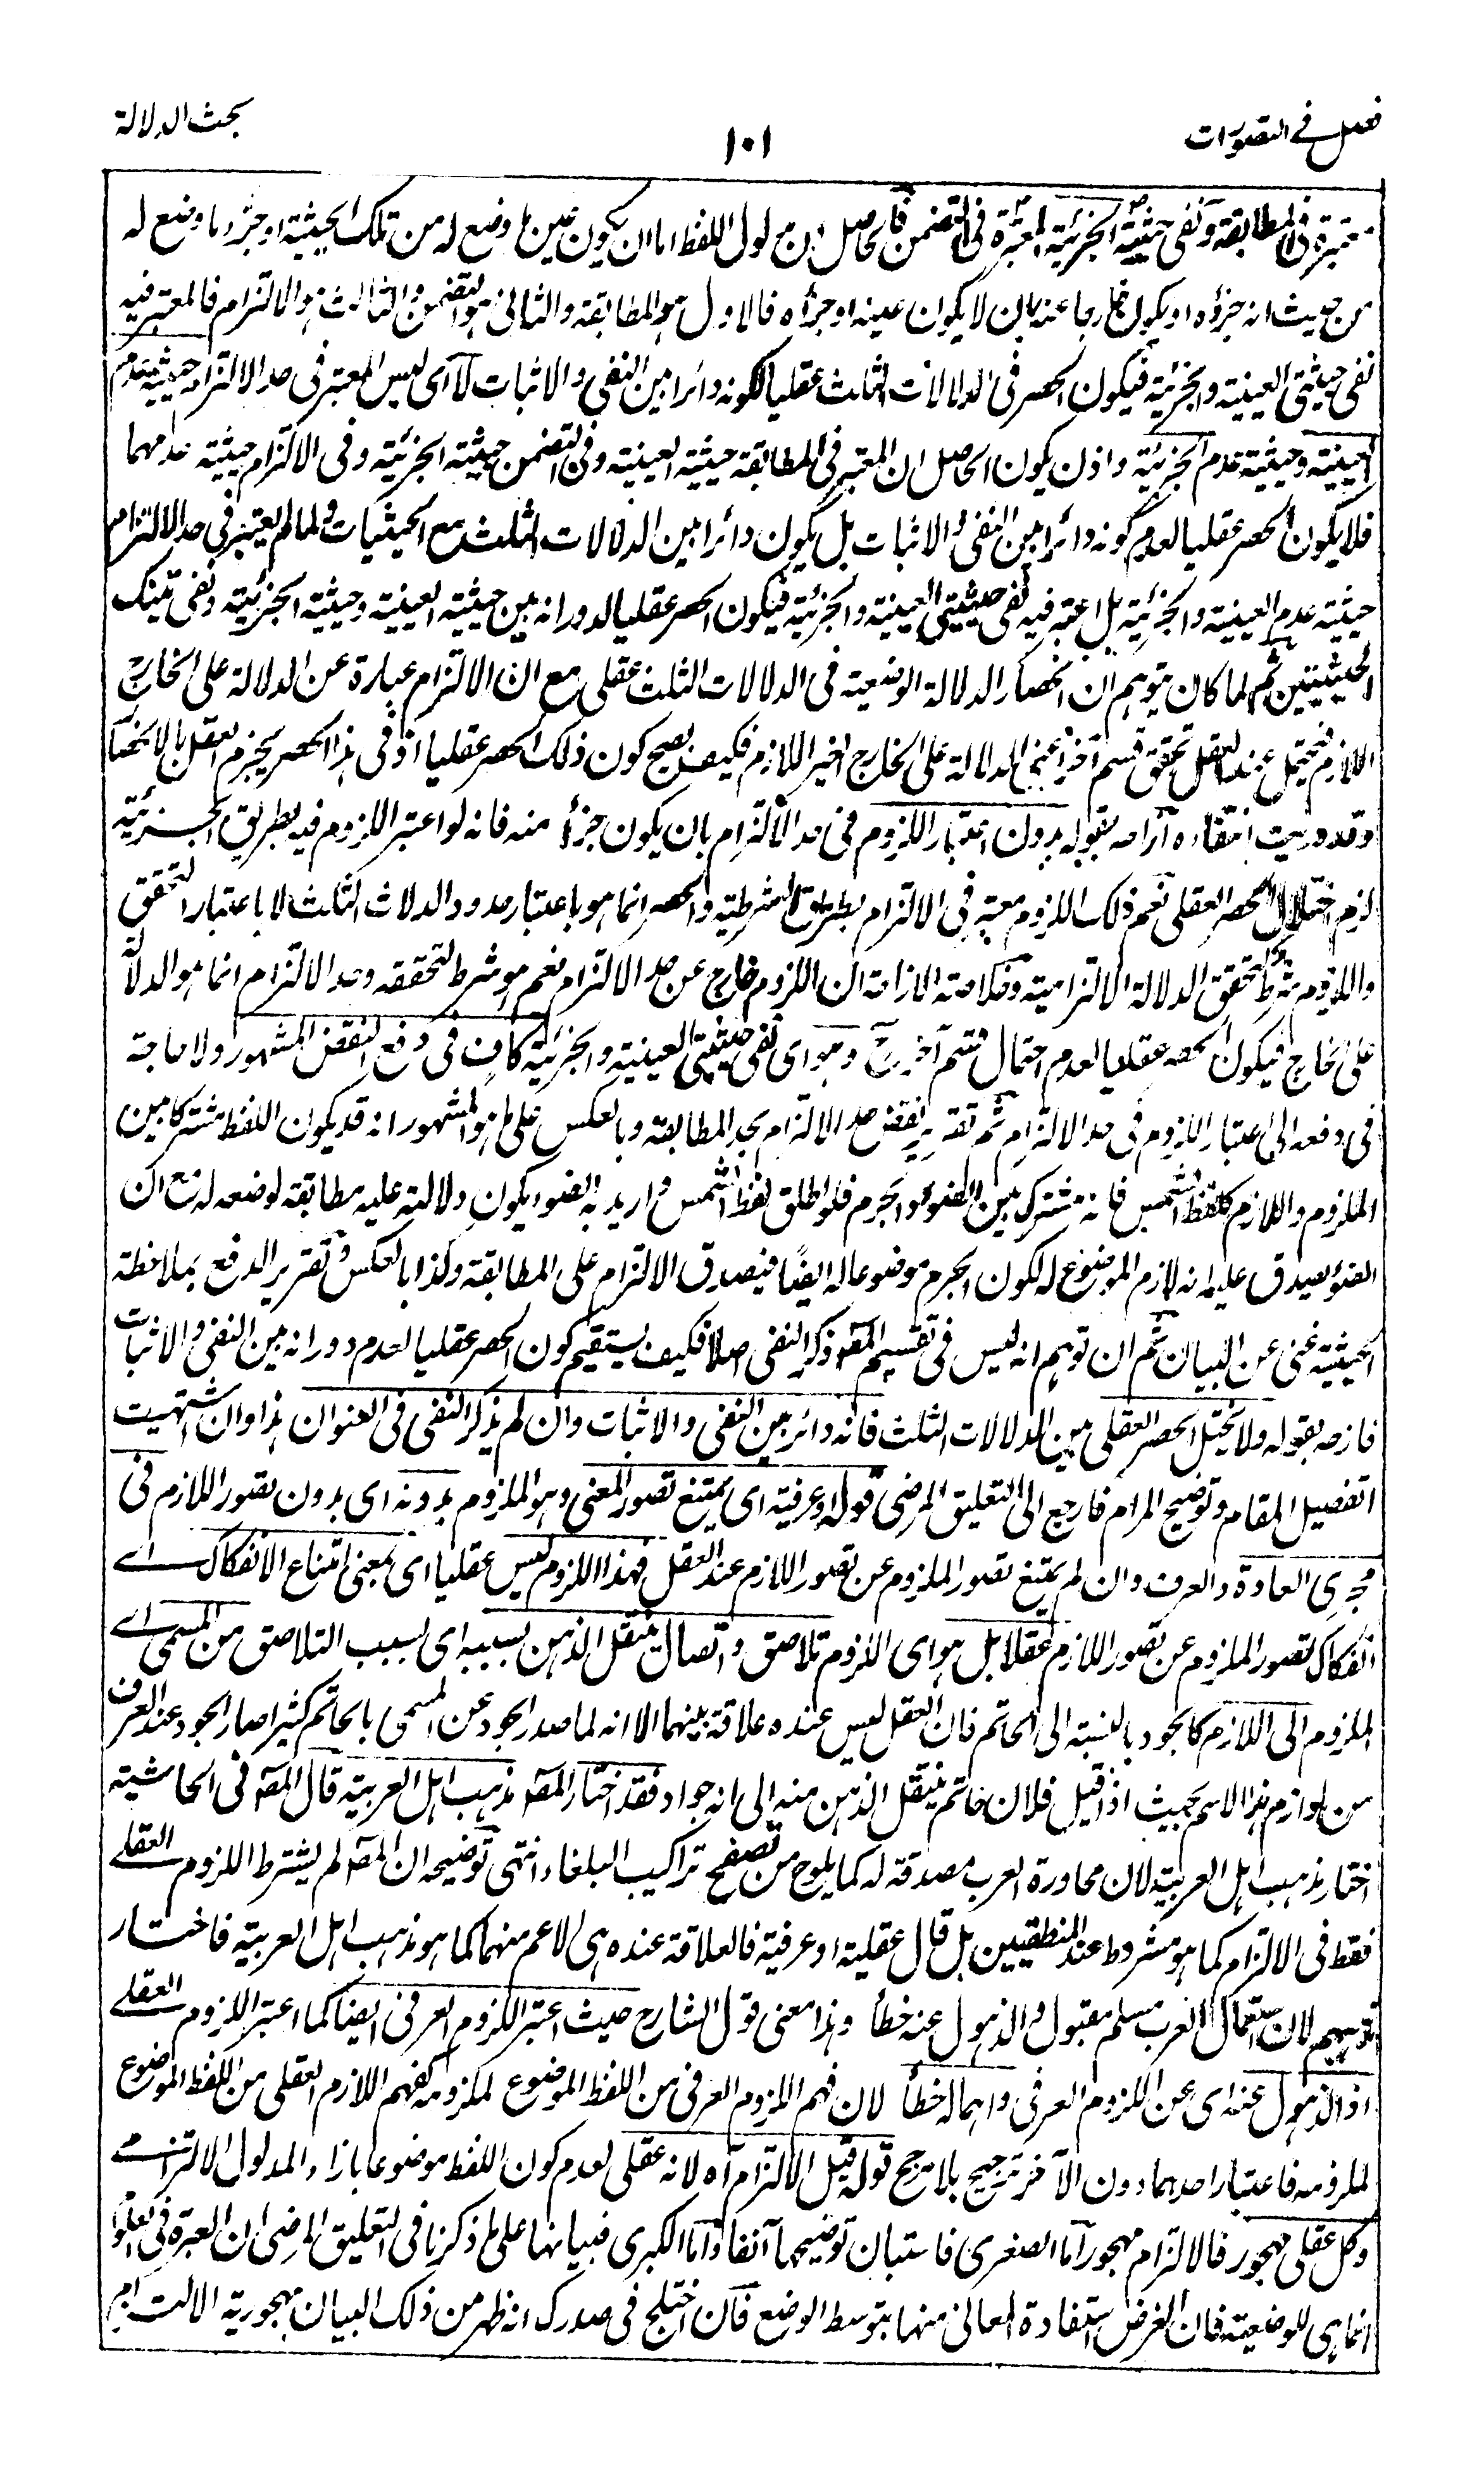 فصل في التصورات
١٠١
بحث الدلالة
معتبرة في المطابقة ونفى حيثية الجزئية المعتبرة في التضمن فالحاصل ان مدلول اللفظ اما ان يكون عين ما وضع له من تلك الحيثية او جزء ما وضع له
من حيث انه جزؤه او يكون خارجا عنه بان لا يكون عينه او جزأه فالاول هو المطابقة والثاني هو التضمن والثالث هو الالتزام فالمعتبر فيه
نفى حيثيتى العينية والجزئية فيكون الحصر في الدلالات الثلث عقليا لكونه دائرا بين النفى والاثبات لا اى ليس المعتبر في حد الالتزام حيثية عدم
العينية وحيثية عدم الجزئية واذن يكون الحاصل ان المعتبر في المطابقة حيثية العينية وفي التضمن حيثية الجزئية وفي الالتزام حيثية عدمهما
فلا يكون الحصر عقليا لعدم كونه دائرا بين النفى والاثبات بل يكون دائرا بين الدلالات الثلث مع الحيثيات ولما لم يعتبر في حد الالتزام
حيثية عدم العينية والجزئية بل اعتبر فيه نفى حيثيتى العينية والجزئية فيكون الحصر عقليا لدورانه بين حيثية العينية وحيثية الجزئية ونفى تينك
الحيثيتين ثم لما كان يتوهم ان انحصار الدلالة الوضعية في الدلالات الثلث عقلى مع ان الالتزام عبارة عن الدلالة على الخارج
اللازم فيحتمل عند العقل تحقق قسم آخر اعنى الدلالة على الخارج الغير اللازم فكيف يصح كون ذلك الحصر عقليا اذ في هذا الحصر يجزم العقل بالانحصار
وقد دريت انتفاءه ازاحه بقوله بدون اعتبار اللزوم في حد الالتزام بان يكون جزأ منه فانه لو اعتبر اللزوم فيه بطريق الجزئية
لزم اختلال الحصر العقلى نعم ذلك اللزوم معتبر في الالتزام بطريق الشرطية والحصر انما هو باعتبار حدود الدلالات الثلث لا باعتبار التحقق
واللزوم شرط لتحقق الدلالة الالتزامية وخلاصة الازاحة ان اللزوم خارج عن حد الالتزام نعم هو شرط لتحققه وحد الالتزام انما هو الدلالة
على الخارج فيكون الحصر عقليا لعدم احتمال قسم آخر ح وهو اى نفى حيثيتى العينية والجزئية كاف في دفع النقض المشهور ولا حاجة
في دفعه الى اعتبار اللزوم في حد الالتزام ثم تقرير نقض حد الالتزام بحد المطابقة وبالعكس على ما هو المشهور انه قد يكون اللفظ مشتركا بين
الملزوم واللازم كلفظ الشمس فانه مشترك بين الضوء والجرم فلو اطلق لفظ الشمس واريد به الضوء يكون دلالته عليه مطابقة لوضعه له مع ان
الضوء يصدق عليه انه لازم الموضوع له لكون الجرم موضوعا له ايضا فيصدق الالتزام على المطابقة وكذا بالعكس وتقرير الدفع بملاحظة
الحيثية غنى عن البيان ثم ان توهم انه ليس في تقسيم المصـ ذكر النفى اصلا فكيف يستقيم كون الحصر عقليا لعدم دورانه بين النفى والاثبات
فازحه بقوله ولا يختل الحصر العقلى بين الدلالات الثلث فانه دائر بين النفى والاثبات وان لم يذكر النفى في العنوان هذا وان اشتهيت
تفصيل المقام وتوضيح المرام فارجع الى التعليق المرضى قوله او عرفية اى يمتنع تصور المعنى وهو الملزوم بدونه اى بدون تصور اللازم في
مجرى العادة والعرف وان لم يمتنع تصور الملزوم عن تصور اللازم عند العقل فهذا اللزوم ليس عقليا اى بمعنى امتناع الانفكاك اے
انفكاك تصور الملزوم عن تصور اللازم عقلا بل هو اى اللزوم تلاصق واتصال ينتقل الذهن بسببه اى بسبب التلاصق من المسمى اے
الملزوم الى اللازم كالجود بالنسبة الى الحاتم فان العقل ليس عنده علاقة بينهما الا انه لما صدر الجود عن المسمى بالحاتم كثيرا صار الجود عند العرف
من لوازم هذا الاسم بحيث اذا قيل فلان حاتم ينتقل الذهن منه الى انه جواد فقد اختار المصـ مذهب اهل العربية قال المصـ في الحاشية
اختار مذهب اهل العربية لان محاورة العرب مصدقة له كما يلوح من تصفح تراكيب البلغاء انتهى توضيحه ان المصـ لم يشترط اللزوم العقلے
فقط في الالتزام كما هو مشروط عند المنطقيين بل قال عقلية او عرفية فالعلاقة عنده هي الاعم منهما كما هو مذهب اهل العربية فاختار
مذهبهم لان استعمال العرب مسلم مقبول والذهول عنه خطأ وهذا معنى قول الشارح حيث اعتبر اللزوم العرفى ايضا كما اعتبر اللزوم العقلے
اذ الذهول عنه اى عن اللزوم العرفى واهماله خطأ لان فهم اللزوم العرفى من اللفظ الموضوع لملزومه كفهم اللازم العقلى من اللفظ الموضوع
لملزومه فاعتبار احدهما دون الآخر ترجيح بلا مرجح قوله قيل الالتزام آه لانه عقلى لعدم كون اللفظ موضوعا بازاء المدلول الالتزامے
وكل عقلى مهجور فالالتزام مهجور اما الصغرى فاستبان توضيحها آنفا واما الكبرى فبيانها على ما ذكرنا في التعليق المرضى ان العبرة في العلوم
انما هى للوضعية فان الغرض استفادة المعانى منها بتوسط الوضع فان اختلج في صدرك انه ظهر من ذلك البيان مهجورية الالتزام